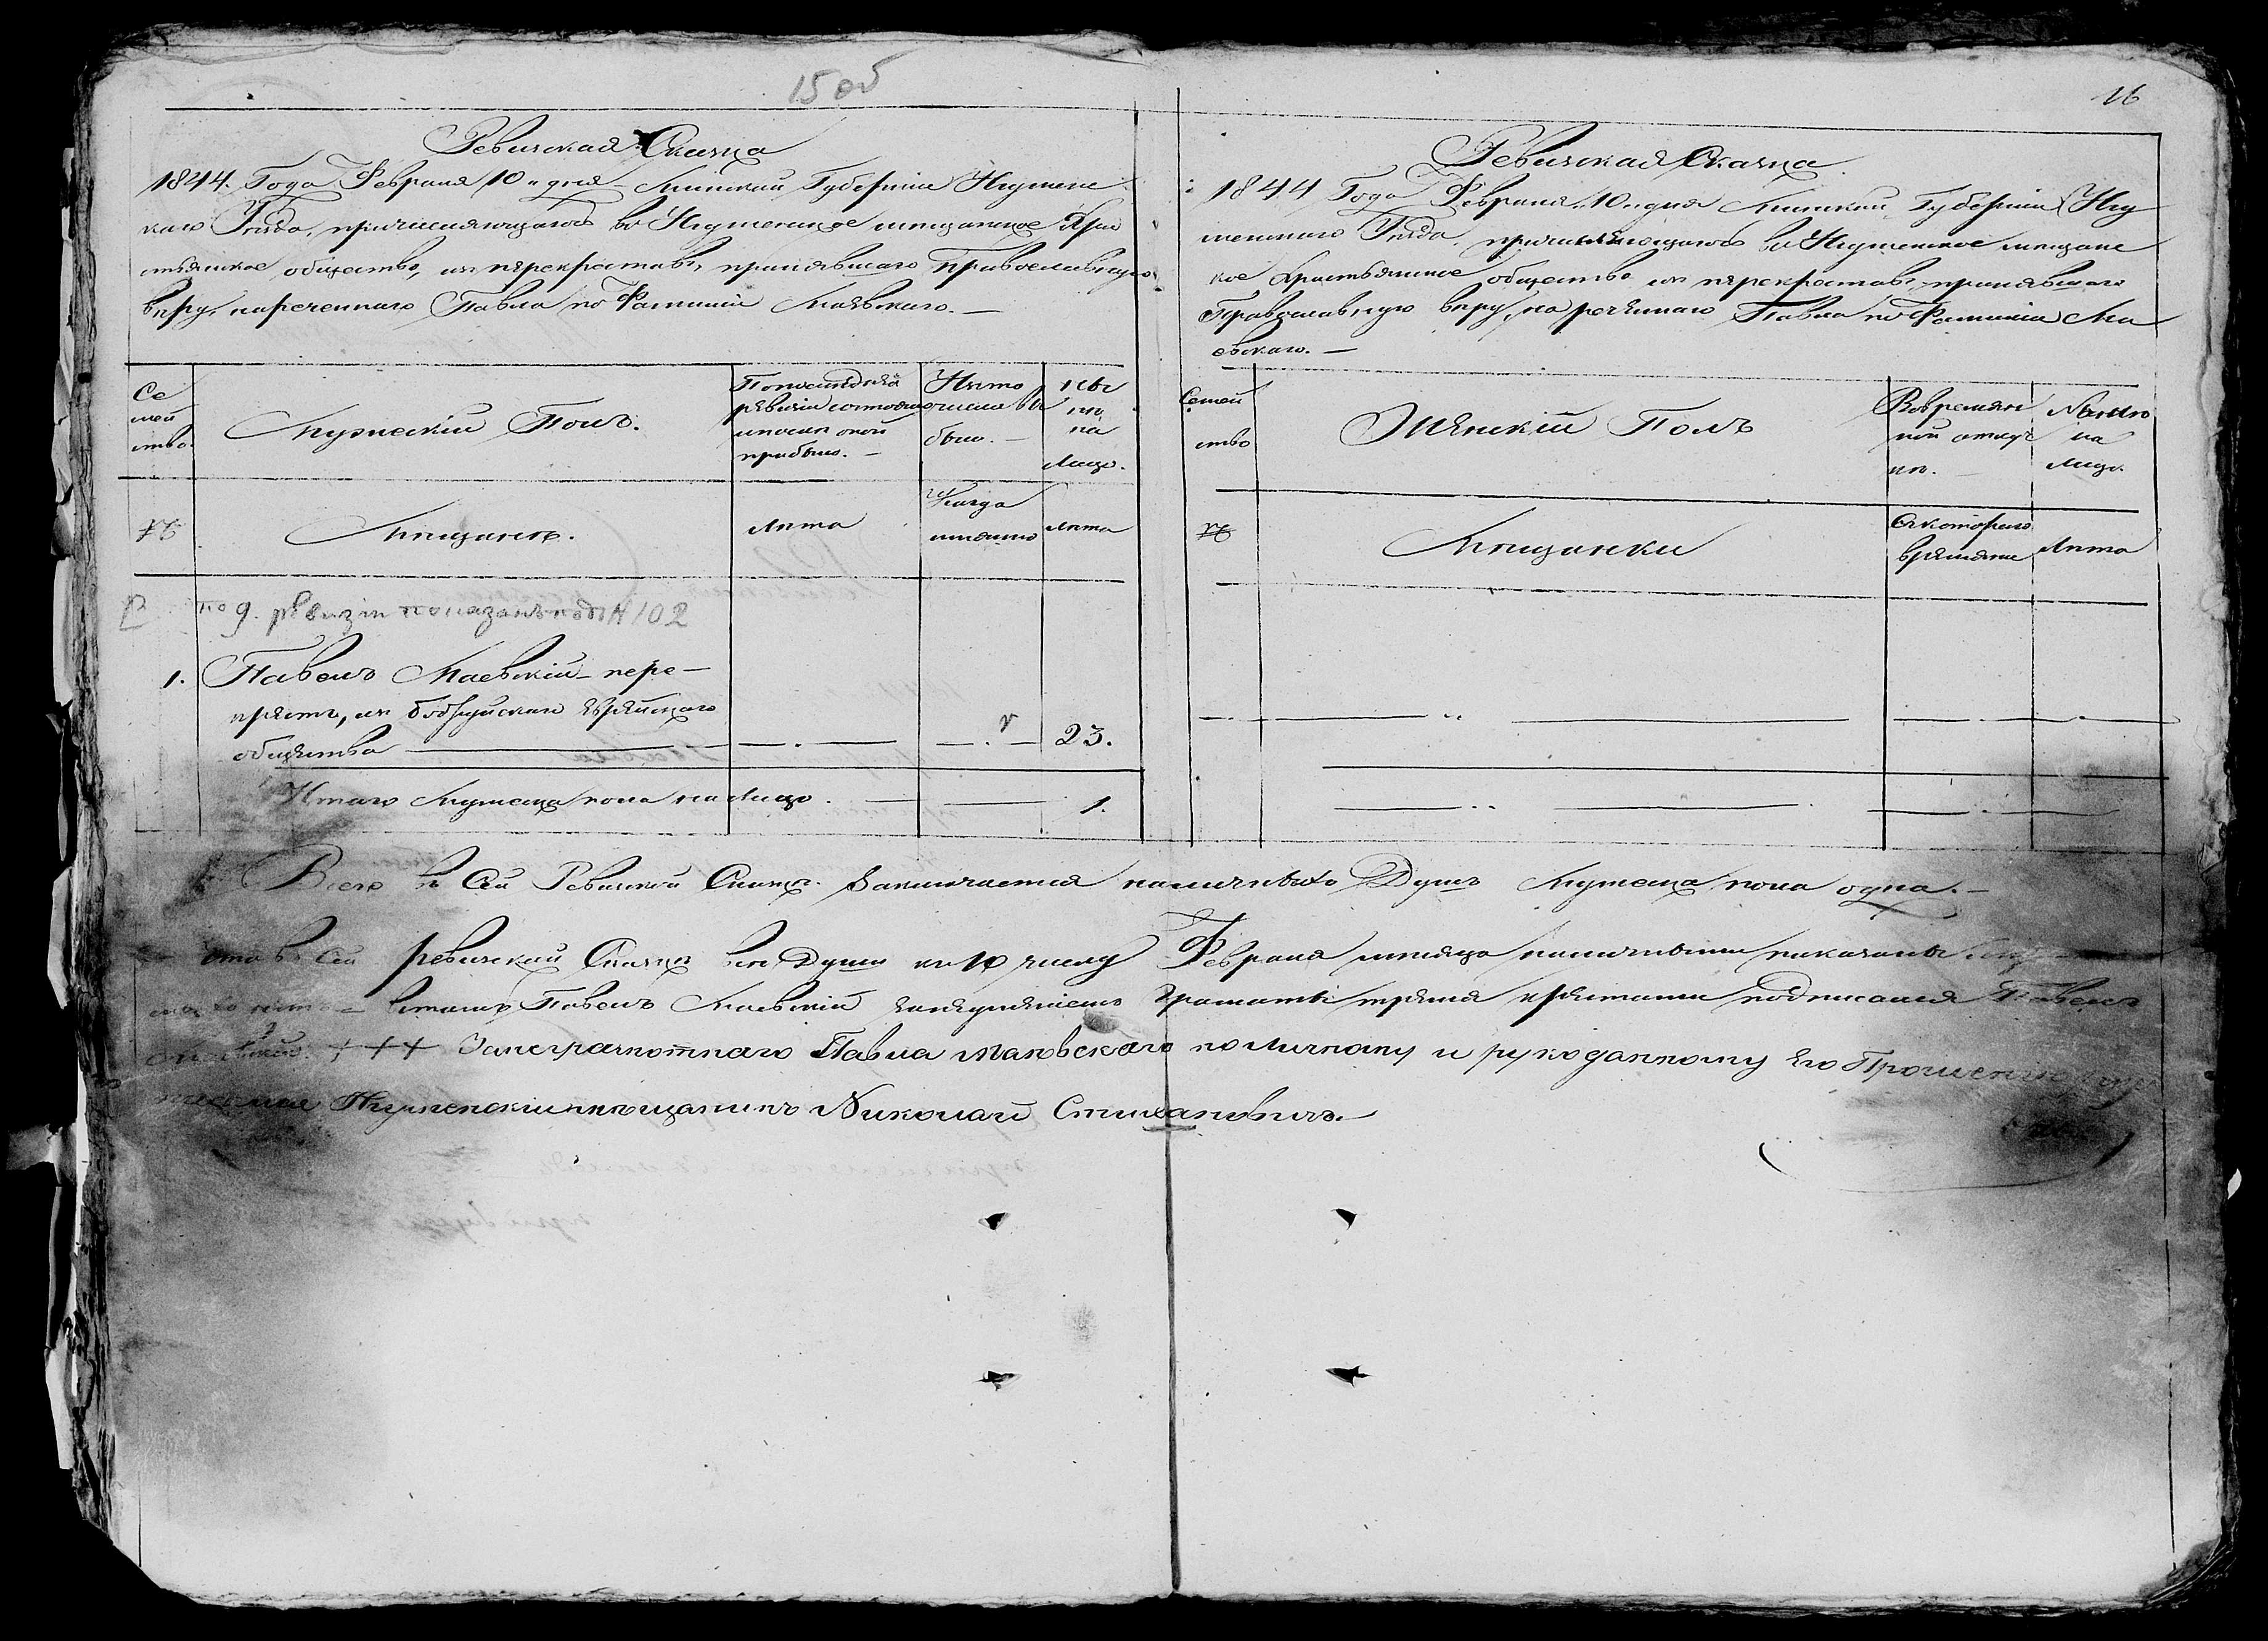 15 об
Ревизская Сказка
1844. Года Февраля 10 дня Минской Губерніи Игуменс
каго Уѣзда, причисляющагося въ Игуменское мещанское Хрис
тіянское общество, изъ перекрестовъ принявшаго Православную
вѣру, нареченнаго Павла по Фамиліи Маевскаго. —
Се
мей
ство
Мужескій Полъ.
По последней
ревизіи состояло
и после оной
прибыло. —
Изъ того
числа вы
было. —
Ныне
на
лицо.
№
Мещане.
Лета
Когда
именно
Лета
по 9. ревизіи показанъ подъ N 102
1. Павелъ Маевскій — пере-
крестъ, изъ бобруйскаго Еврейскаго
общества — 23.
Итого Мужеска пола на Лицо. — 1.
16
Ревизская Сказка.
1844 Года Февраля 10 дня Минской Губерніи Игу
менскаго Уезда, причисляющагося въ Игуменское мещанс
кое Христьянское общество изъ перекрестовъ принявшаго
Православную вѣру, нареченнаго Павла по Фамиліи Ма
евскаго. —
Семей
ство
Женскій Полъ
Во временной отлуч
ке. —
Ныне
на
лицо.
№
Мещанки
Съ котораго
времяни
Лета
Всего въ Сей Ревизкой Сказке Заключается наличныхъ Душъ Мужеска пола одна. —
что въ Сей ревизской Сказке все Души къ 10 числу Февраля месяца наличными показаны
въ томъ Павелъ Маевскій за неумениемъ Грамоты тремя крестами подписался Павелъ
Маевскій +++ За неграмотнаго Павла маевскаго по Личному и рукоданному Его Прошенію
Игуменскій мещанинъ Николай Стихановичъ.